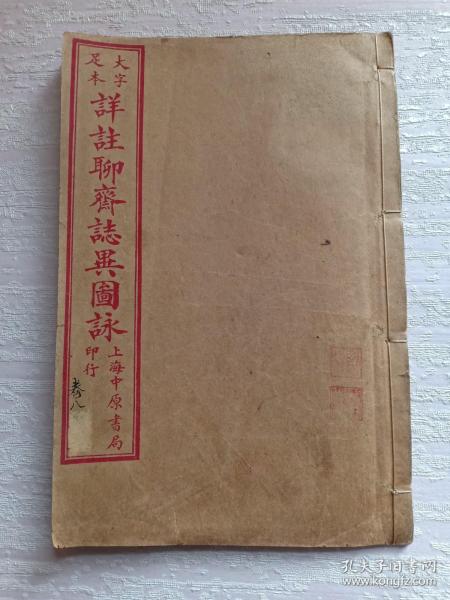 大字
足本
詳註聊齋誌異圖詠
上海中原書局
印行
卷八
孔夫子旧书网
www.kongfz.com